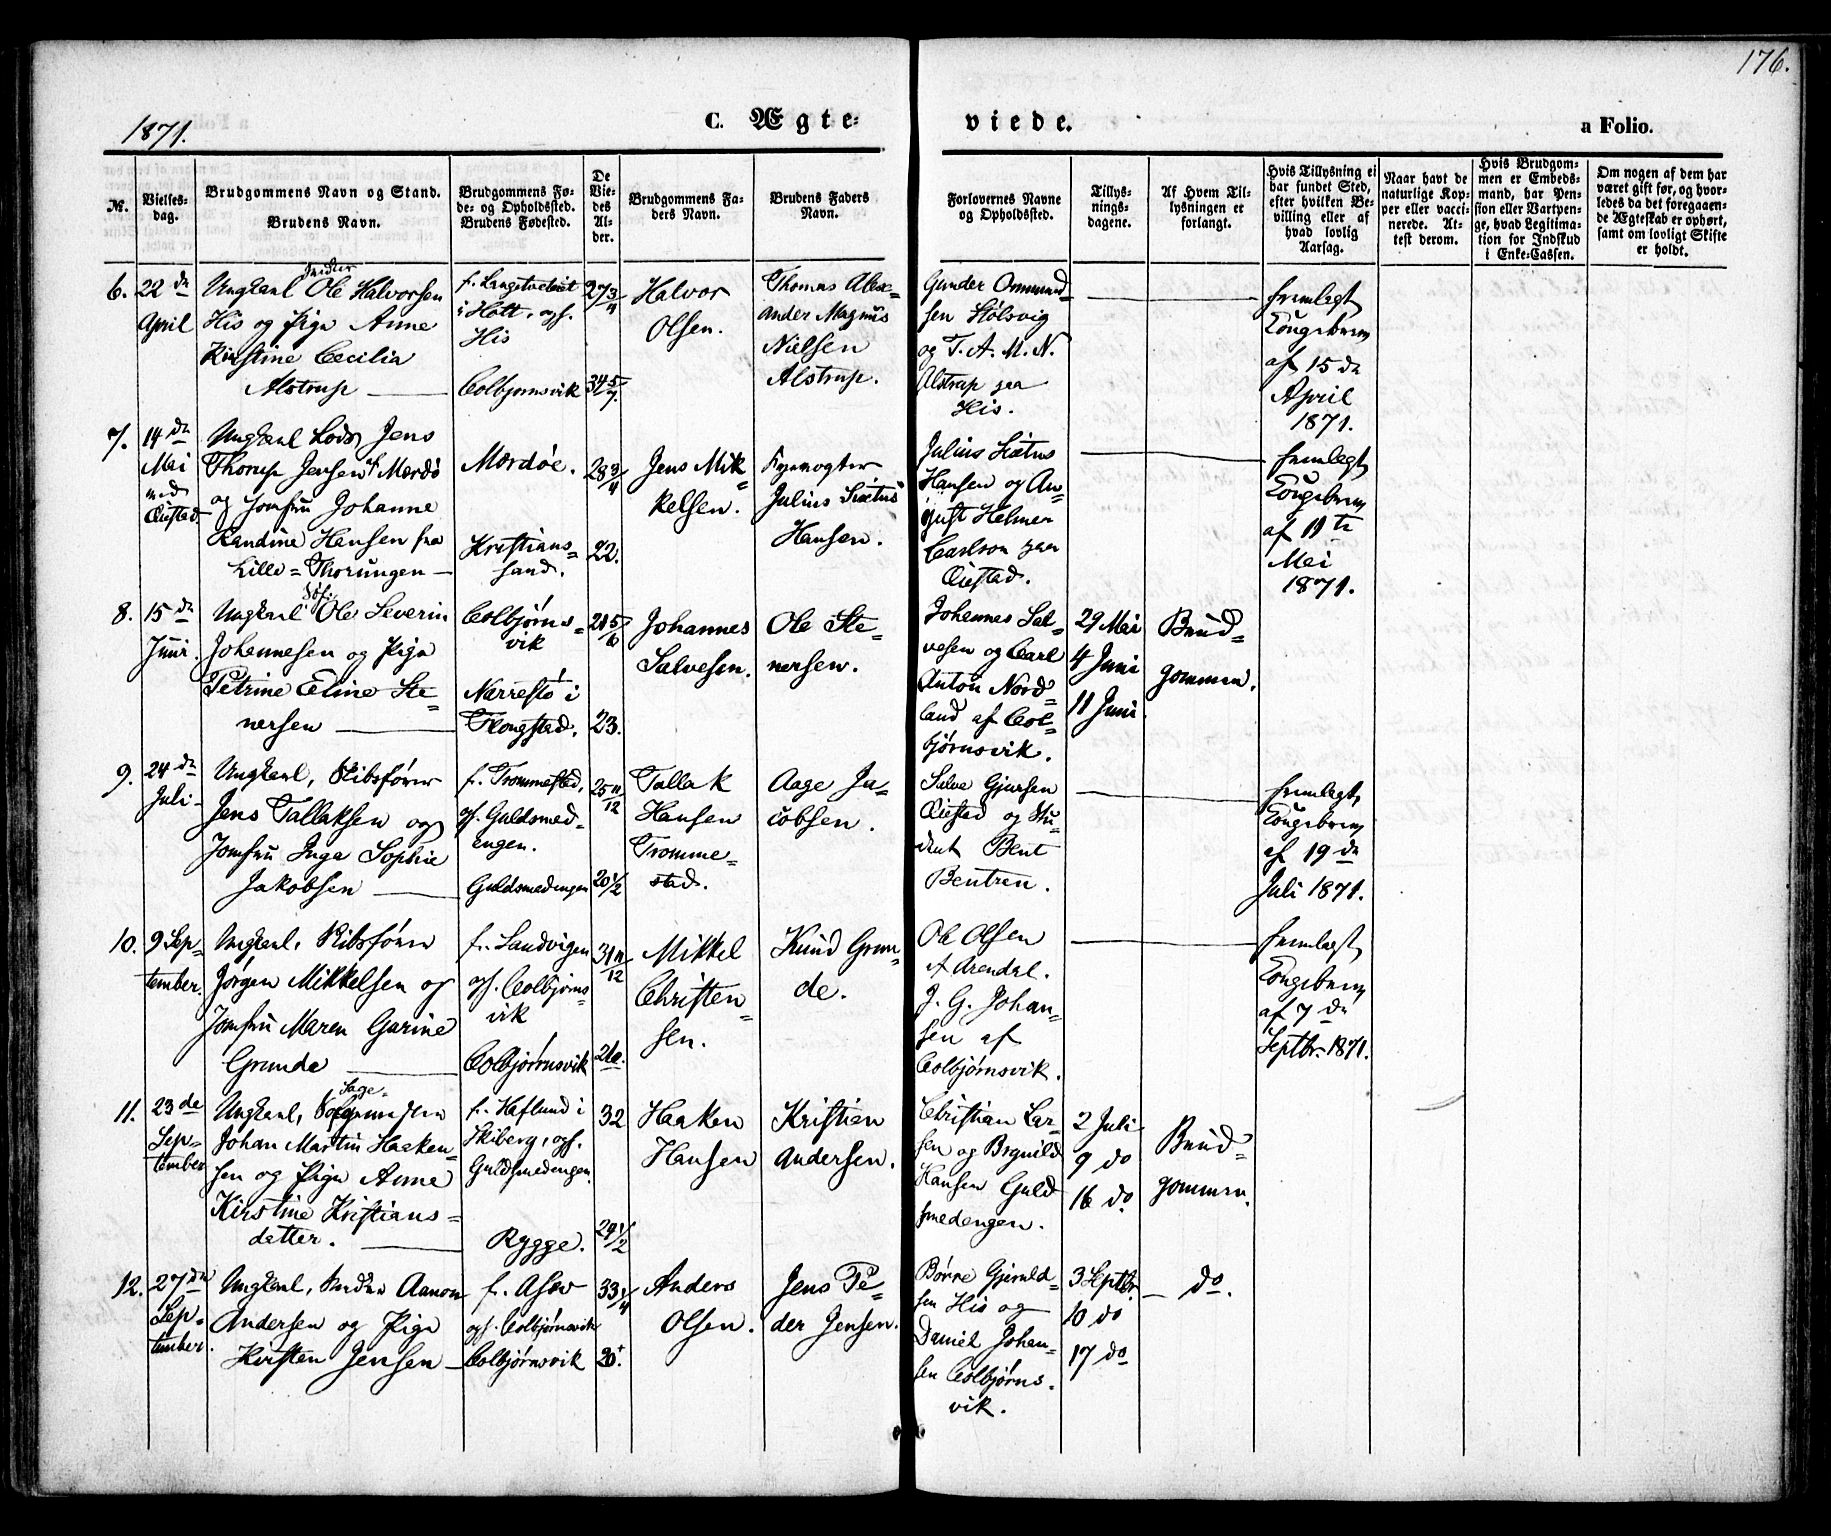 176.
1871.
C. Ægte-
viede.
a Folio.
No.
Vielses-
dag.
Brudgommens Navn og Stand.
Brudens Navn.
Brudgommens Fø-
de- og Opholdssted.
Brudens Fødested.
De
Vie-
des
Al-
der.
Brudgommens Fa-
ders Navn.
Brudens Faders
Navn.
Forlovernes Navne
og Opholdssted.
Tillys-
nings-
dagene.
Af Hvem Til-
lysningen er
forlangt.
Hvis Tillysning ei
har fundet Sted,
efter hvilken Be-
villing eller af
hvad lovlig
Aarsag.
Naar havt de
naturlige Kop-
per eller vacci-
nerede. At-
test derom.
Hvis Brudgom-
men er Embeds-
mand, har Pen-
sion eller Vartpen-
ge, hvad Legitima-
tion for Indskud
i Enke-Cassen.
Om nogen af dem har
været gift før, og hvor-
ledes da det foregaaen-
de Ægteskab er ophørt,
samt om lovligt Skifte
er holdt.
6.
22 de
April
Ungkarl Ole Halvorsen
His og Pige Anne
Kirstine Cecilia
Alstrup
i Holt, opf.
His
Colbjørnsvik
27 3/4
34 5/7
Halvor
Olsen.
Thomas Alex-
ander Magnus
Nielsen
Alstrup.
Gunder Ommund-
sen Stølsvig
og T. A. M. N.
Alstrup paa
His.
fremlagt
Kongebrev
af 15 de
April
1871.
7.
14 de
Mai
ved
Øiestad
Ungkarl Lods Jens
Thorup Jensen af Mærdø
og Jomfru Johanne
Randine Hansen fra
Lille-Thorungen
Mærdøe.
Kristians-
sand.
28 3/4
22.
Jens Mik-
kelsen.
Fyrvogter
Julius Sixtus
Hansen.
Julius Sixtus
Hansen og Au-
gust Helmer
Carlson paa
Øiestad.
fremlagt
Kongebrev
af 11 te
Mai
1871.
8.
15 de
Juni.
Ungkarl Ole Severin
Johannesen og Pige
Petrine Eline Ste-
nersen
Colbjørns-
vik
Narrestø i
Flougstad.
21 5/6
23.
Johannes
Salvesen.
Ole Ste-
nersen.
Johannes Sal-
vesen og Carl
Anton Nord-
land af Col-
bjørnsvik.
29 Mai
4 Juni
11 Juni
Brud-
gommen.
9.
24 de
Juli
Ungkarl, Skibsfører
Jens Tallaksen og
Jomfru Inga Sophie
Jakobsen
f. Trommestad,
opf. Guldsmed-
engen.
Guldsmedengen
25 11/12
20 1/2
Tallak
Hansen
Tromme-
stad.
Aage Ja-
cobsen.
Salve Gjursen
Øiestad og Stu-
dent Bent
Bentzen.
fremlagt,
Kongebrev
af 19 de
Juli 1871.
10.
9 Sep-
tember.
Ungkarl, Skibsfører
Jørgen Mikkelsen og
Jomfru Maren Garine
Grunde
f. Sandvigen
opf. Colbjørns-
vik
Colbjørnsvik
31 11/12
Mikkel
Christen-
sen.
Knud Grun-
de.
Ole Olsen
af Arendal.
J. G. Johan-
sen af
Colbjørnsvik.
fremlagt
Kongebrev
af 7 de
Septbr. 1871.
11.
23 de
Sep-
tember
Ungkarl,
Johan Martin Haaken-
sen og Pige Anne
Kirstine Kristians-
datter.
f. Haflund i
Skiberg, opf.
Guldsmedengen.
Rygge.
32
29 1/2
Haaken
Hansen
Kristian
Andersen.
Christian Lar-
sen og Brynild
Hansen Guld
smedengen.
2 Juli
9 do
16 do
Brud-
gommen.
12.
27 de
Sep-
tember.
Ungkarl, Snedker Aanon
Andersen og Pige
Kirsten Jensen
f. Asev
opf. Colbjørnsvik
Colbjørnsvik
33 1/4
20
Anders
Olsen.
Jens Pe-
der Jensen.
Børre Gjeruld-
sen His og
Daniel Johan-
sen Colbjørns-
vik.
3 Septbr.
10 do
17 do
do.